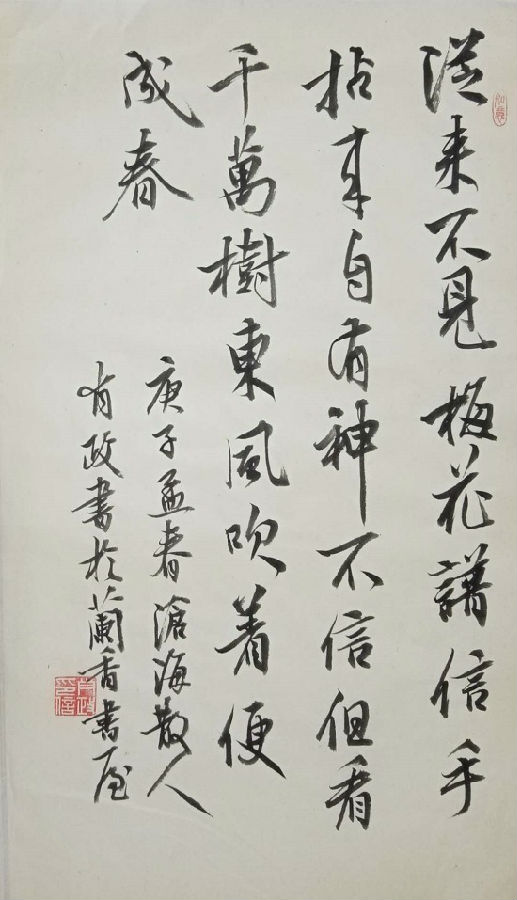 從来不見梅花譜信手
拈来自有神不信但看
千萬樹東風吹著便
成春
庚子孟春滄海散人
有政書於蘭香書屋